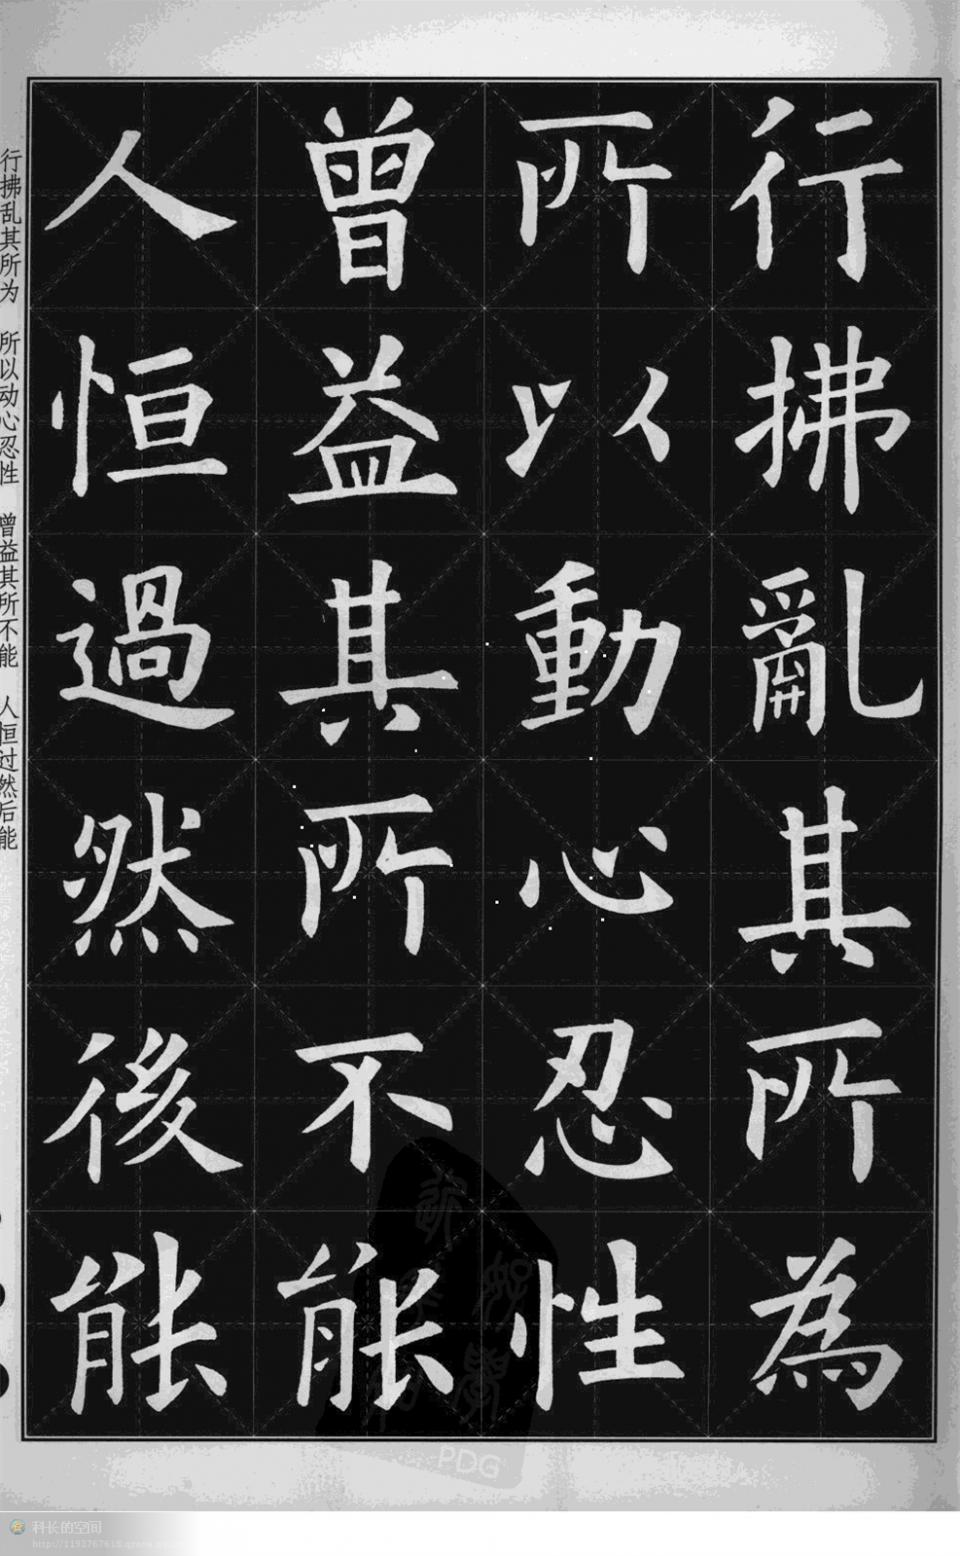 行拂亂其所為
所以動心忍性
曾益其所不能
人恒過然後能
行拂乱其所为 所以动心忍性 增益其所不能 人恒过然后能
PDG
科长的空间